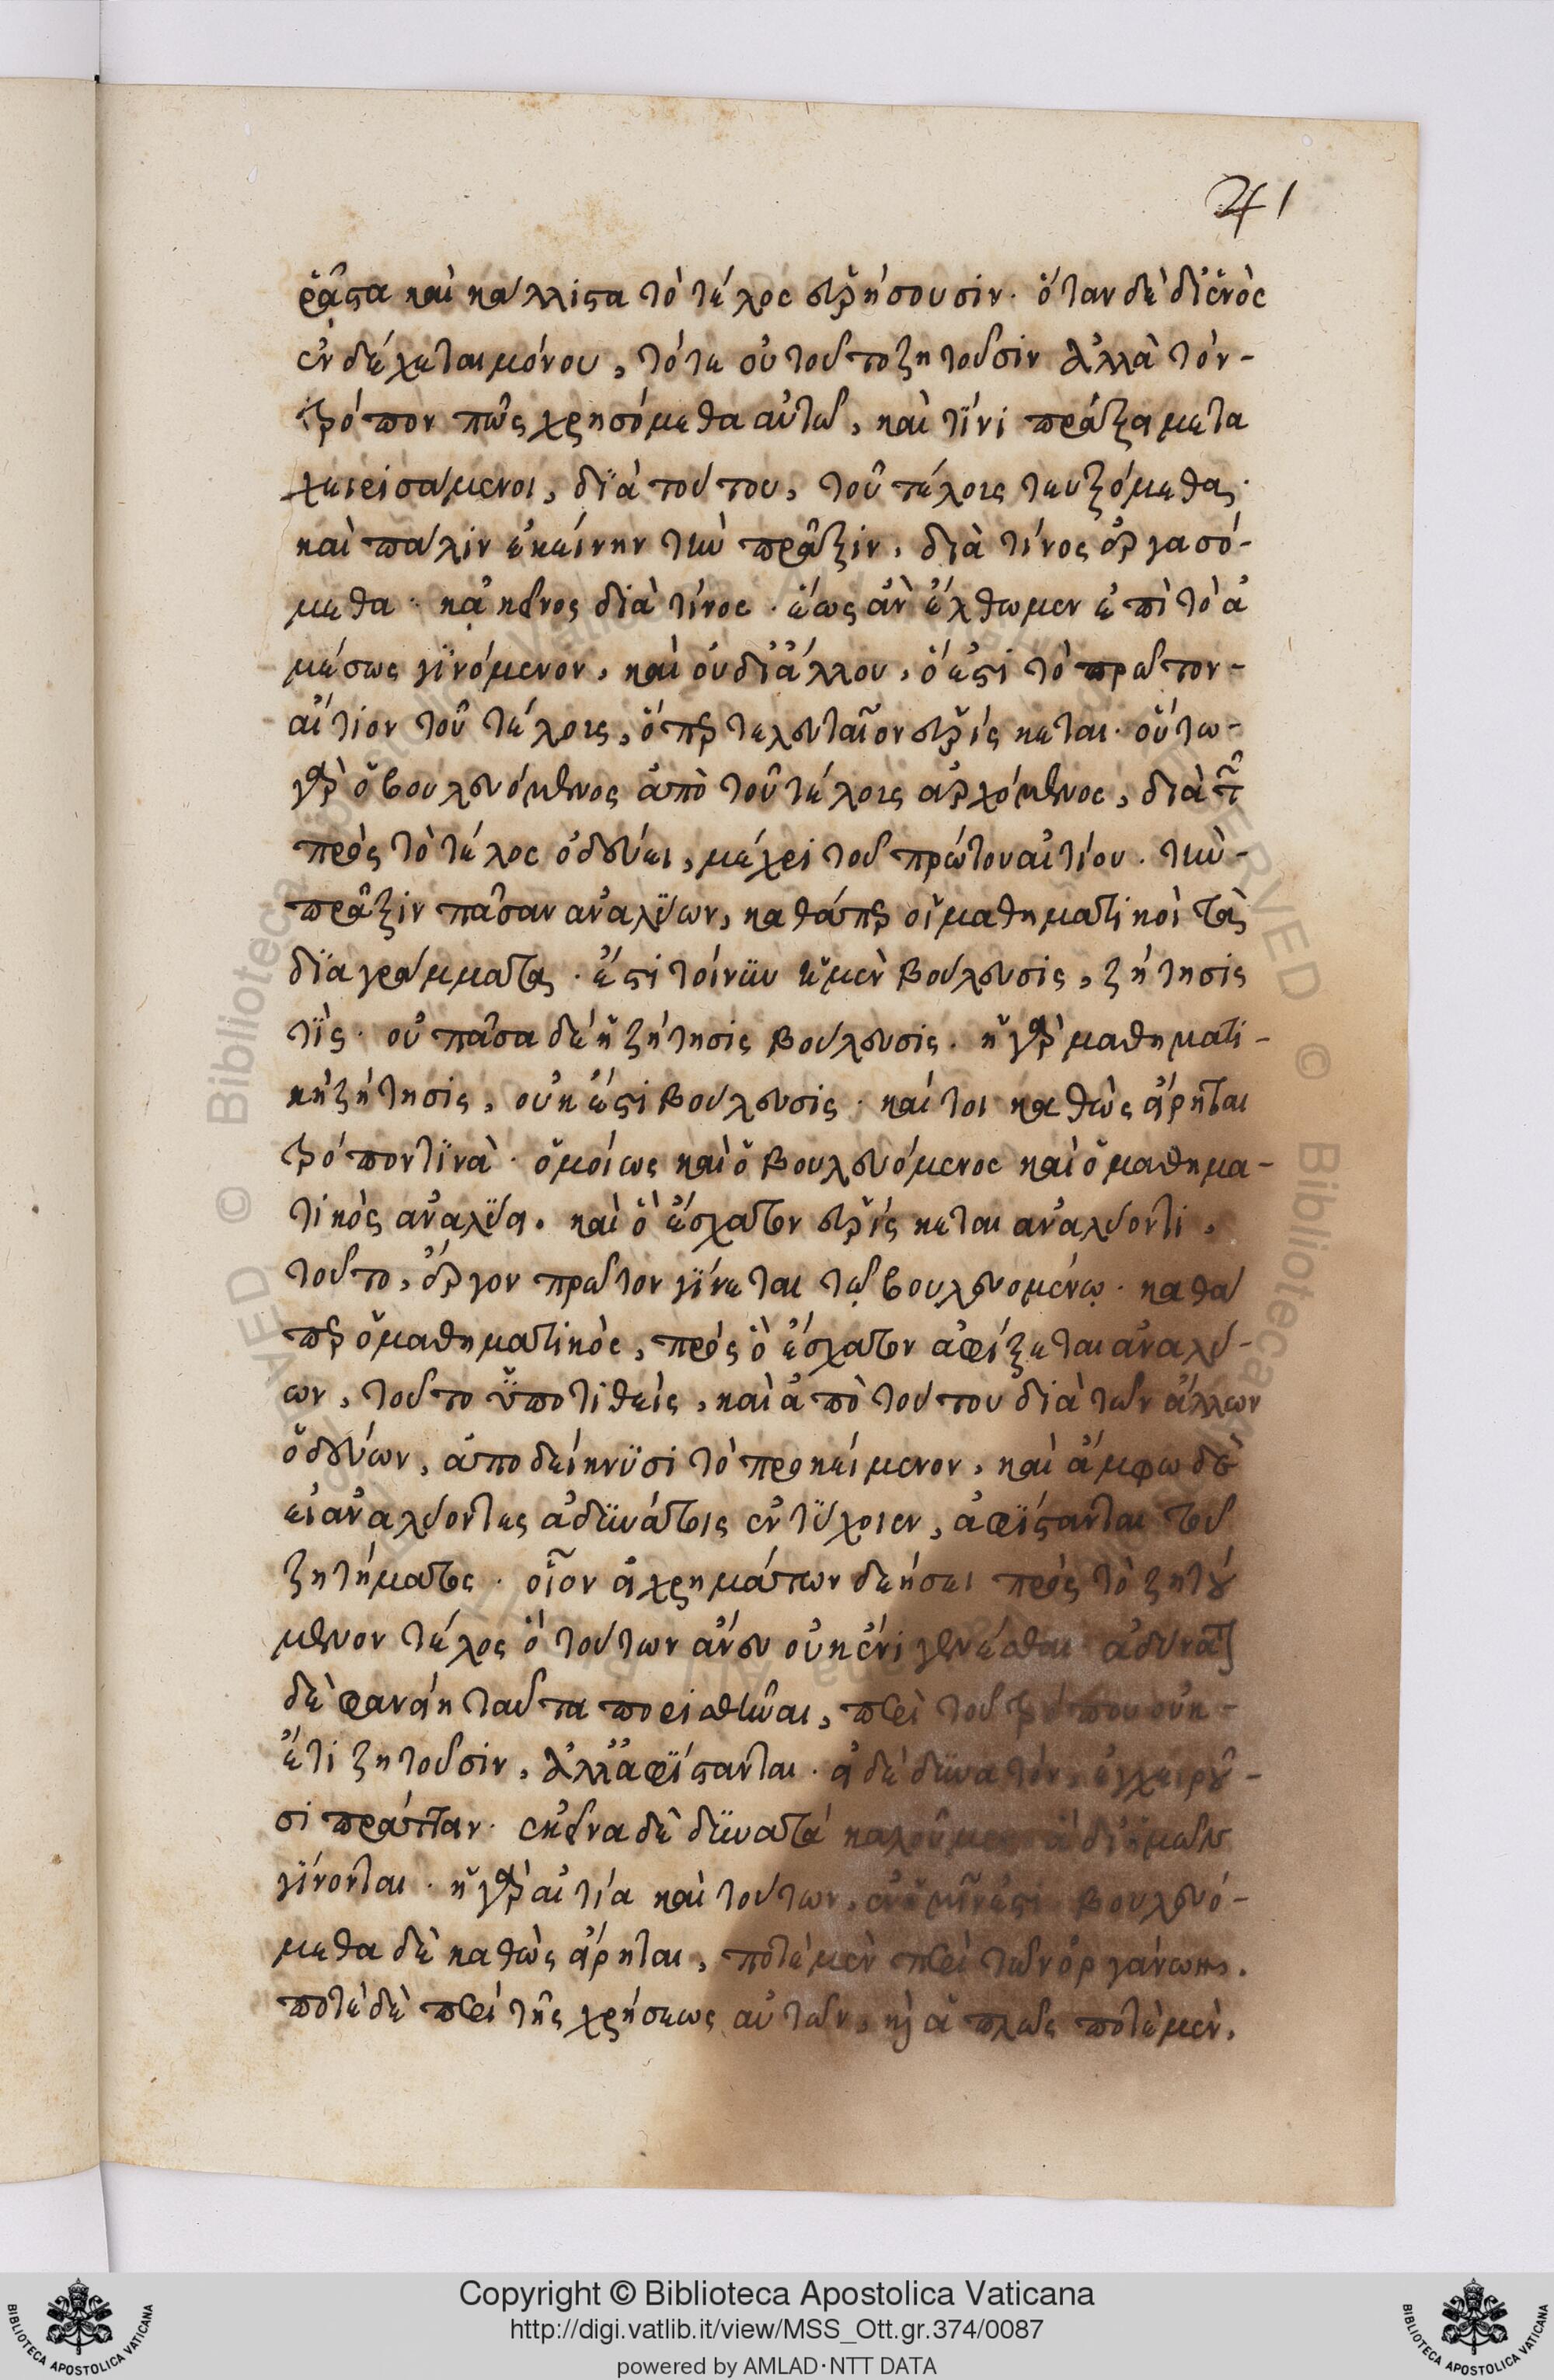 41
ῥᾷστα καὶ κάλλιστα τὸ τέλος εὑρήσουσιν· ὅταν δὲ δι' ἑνὸς
ἐνδέχεται μόνου, τότε οὐ τοῦτο ζητοῦσιν ἀλλὰ τὸν-
τρόπον πῶς χρησόμεθα αὐτῶ, καὶ τίνι πράξει μετα
χειρισάμενοι, διὰ τούτου, τοῦ τέλους τευξόμεθα·
καὶ πάλιν ἐκείνην τὴν πρᾶξιν, διὰ τίνος ἐργασό-
μεθα· κἀκεῖνος διὰ τίνος· ἕως ἂν ἔλθωμεν ἐπὶ τὸ ἀ
μέσως γινόμενον, καὶ οὐ δι' ἄλλου, ὅ ἐστι τὸ πρῶτον-
αἴτιον τοῦ τέλους, ὅπερ τελευταῖον εὑρίσκεται· οὕτω-
γὰρ ὁ βουλευόμενος ἀπὸ τοῦ τέλους ἀρχόμενος, διὰ τῶν
πρὸς τὸ τέλος ὁδεύει, μέχρι τοῦ πρώτου αἰτίου. τὴν-
πρᾶξιν πᾶσαν ἀναλύων, καθάπερ οἱ μαθηματικοὶ τὰ
διαγράμματα· ἔστι τοίνυν ἡ μὲν βούλευσις, ζήτησίς
τις· οὐ πᾶσα δὲ ἡ ζήτησις βούλευσις. ἡ γὰρ μαθηματι-
κὴ ζήτησις, οὐκ ἔστι βούλευσις· καίτοι καθὼς εἴρηται
τρόπον τινὰ· ὁμοίως καὶ ὁ βουλευόμενος καὶ ὁ μαθημα-
τικὸς ἀναλύει. καὶ ὃ ἔσχατον εὑρίσκεται ἀναλύοντι,
τοῦτο, ἔργον πρῶτον γίνεται τῷ βουλευομένῳ· καθά
περ ὁ μαθηματικὸς, πρὸς ὃ ἔσχατον ἀφίξεται ἀναλύ-
ων, τοῦτο ὑποτιθεὶς, καὶ ἀπὸ τούτου διὰ τῶν ἄλλων
ὁδεύων, ἀποδείκνυσι τὸ προκείμενον, καὶ ἄμφω δὲ
εἰ ἀναλύοντες ἀδυνάτοις ἐντύχοιεν, ἀφίστανται τοῦ
ζητήματος· οἷον εἰ χρημάτων δεήσει πρὸς τὸ ζητού
μενον τέλος ὃ τούτων ἄνευ οὐκ ἔνι γενέσθαι ἀδύνατον
δὲ φανείη ταῦτα πορισθῆναι, περὶ τοῦ τρόπου οὐκ-
έτι ζητοῦσιν, ἀλλ' ἀφίστανται· εἰ δὲ δυνατὸν, ἐγχειροῦ-
σι πράττειν· ἐκεῖνα δὲ δυνατὰ καλοῦμεν ἃ δι' ἡμῶν
γίνονται· ἡ γὰρ αἰτία καὶ τούτων, ἐν ἡμῖν ἐστι βουλευό-
μεθα δὲ καθὼς εἴρηται, ποτὲ μὲν περὶ τῶν ὀργάνων.
ποτὲ δὲ περὶ τῆς χρήσεως αὐτῶν, καὶ ἁπλῶς ποτὲ μὲν,
Copyright © Biblioteca Apostolica Vaticana
http://digi.vatlib.it/view/MSS_Ott.gr.374/0087
powered by AMLAD·NTT DATA
BIBLIOTECA APOSTOLICA VATICANA
BIBLIOTECA APOSTOLICA VATICANA